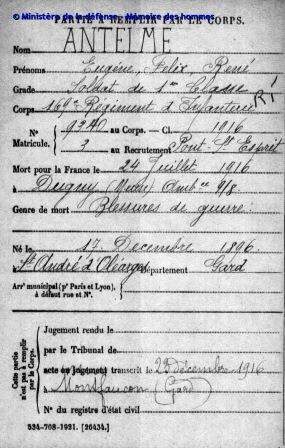 © Ministère de la défense - Mémoire des hommes
PARTIE A REMPLIR PAR LE CORPS.
Nom ANTELME
Prénoms Eugène, Felix, René
Grade Soldat de 1ère Classe
Corps 169e Régiment d'Infanterie RI
N° Matricule. 9340 au Corps. — Cl. 1916
3 au Recrutement Pont St Esprit
Mort pour la France le 24 Juillet 1916
à Dugny (Meuse) Amb ce 9/8
Genre de mort Blessures de guerre
Né le 17 Decembre 1896
à St André d'Oléargues Département Gard
Arrt municipal (pr Paris et Lyon), à défaut rue et N°.
Cette partie n'est pas à remplir par le Corps.
Jugement rendu le
par le Tribunal de
acte ou jugement transcrit le 29 décembre 1916
à Montfaucon (Gard)
N° du registre d'état civil
534-708-1921. [26434.]